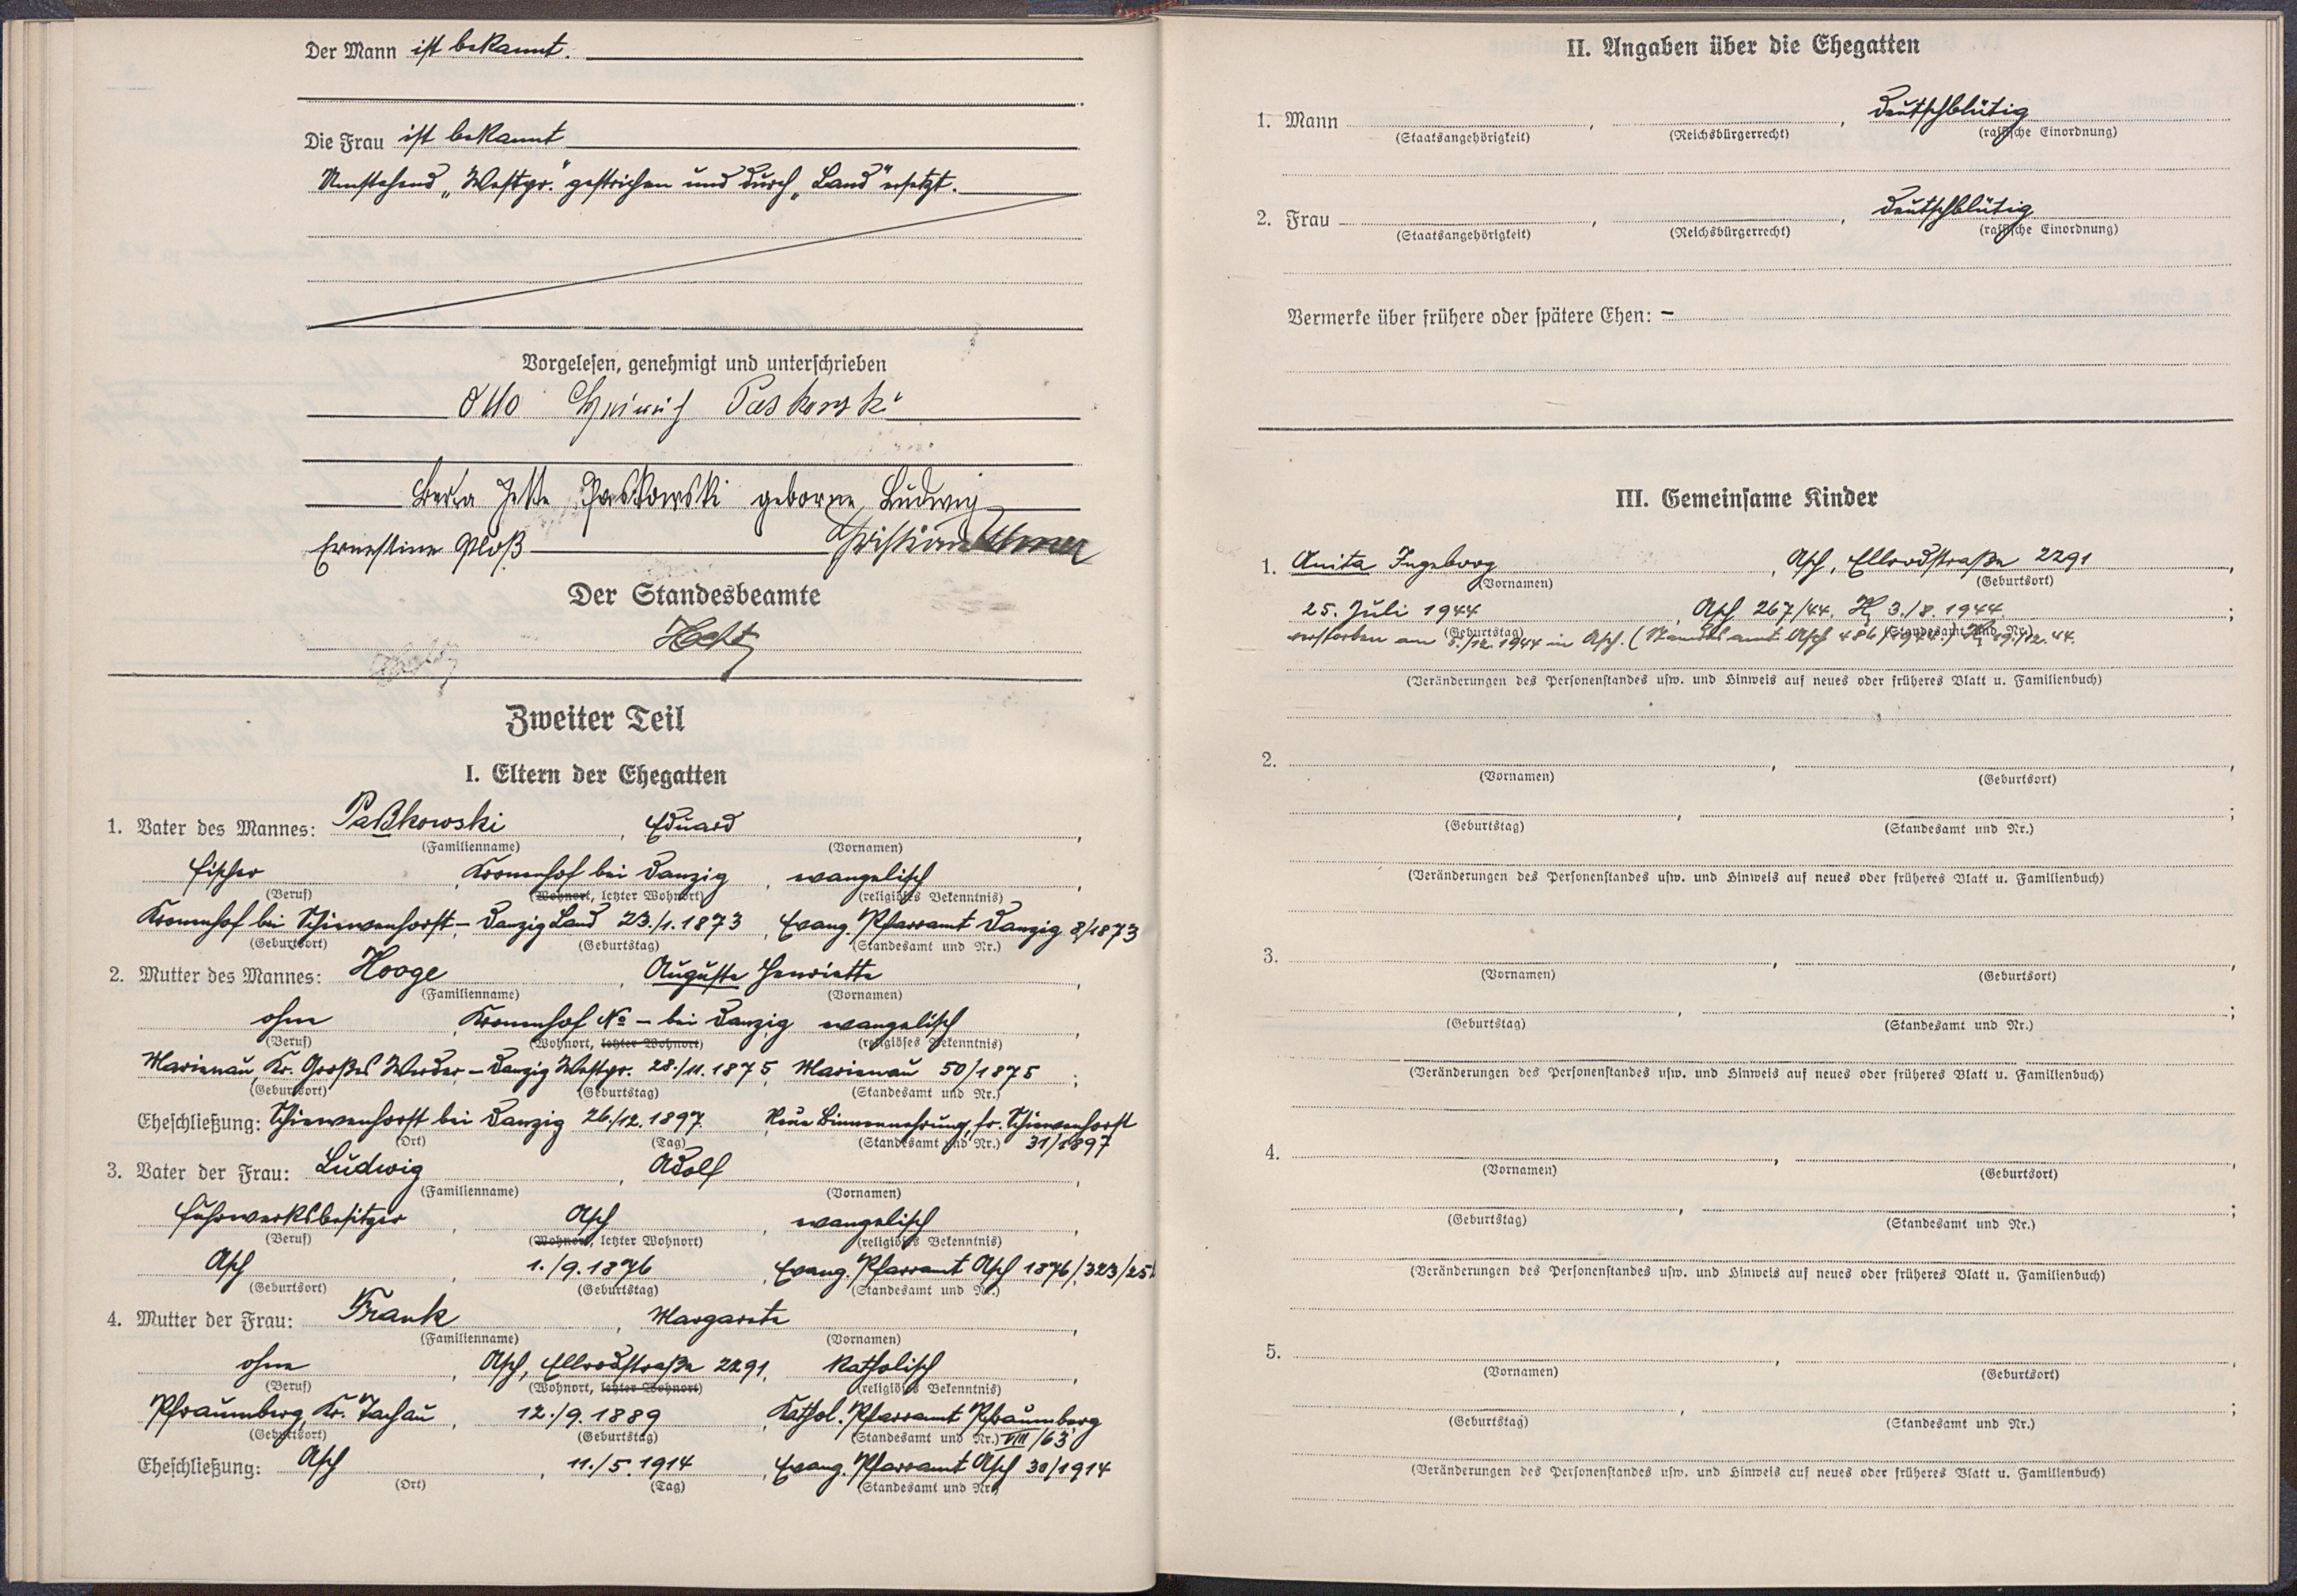 Der Mann ist bekannt.
Die Frau ist bekannt
Umstehend „Westpr.“ gestrichen und durch „Land“ ersetzt.
Vorgelesen, genehmigt und unterschrieben
Otto Heinrich Paskowski
Berta Jette Paskowski geborne Ludwig
Ernestine Ploß Christian
Der Standesbeamte
Zweiter Teil
I. Eltern der Ehegatten
1. Vater des Mannes: Paßkowski, Eduard
(Familienname) (Vornamen)
Fischer, Kronenhof bei Danzig, evangelisch,
(Beruf) (Wohnort, letzter Wohnort) (religiöses Bekenntnis)
Kronenhof bei Schiewenhorst - Danzig Land 23./1. 1873, Evang. Pfarramt Danzig 8/1873
(Geburtsort) (Geburtstag) (Standesamt und Nr.)
2. Mutter des Mannes: Hooge, Auguste Henriette,
(Familienname) (Vornamen)
ohne, Kronenhof No - bei Danzig evangelisch,
(Beruf) (Wohnort, letzter Wohnort) (religiöses Bekenntnis)
Marienau, Kr. Großes Werder - Danzig Westpr. 28./11. 1875, Marienau 50/1875;
(Geburtsort) (Geburtstag) (Standesamt und Nr.)
Eheschließung: Schiewenhorst bei Danzig 26./12. 1897. Neue Binnennehrung, fr. Schiewenhorst
(Ort) (Tag) (Standesamt und Nr.) 31/1897
3. Vater der Frau: Ludwig, Adolf,
(Familienname) (Vornamen)
Fuhrwerksbesitzer, Asch, evangelisch,
(Beruf) (Wohnort, letzter Wohnort) (religiöses Bekenntnis)
Asch, 1./9. 1876, Evang. Pfarramt Asch 1876/323/25
(Geburtsort) (Geburtstag) (Standesamt und Nr.)
4. Mutter der Frau: Frank, Margarete,
(Familienname) (Vornamen)
ohne, Asch, Ellrodstraße 2291, katholisch,
(Beruf) (Wohnort, letzter Wohnort) (religiöses Bekenntnis)
Pfraumberg, Kr. Tachau, 12./9. 1889, Kathol. Pfarramt Pfraumberg
(Geburtsort) (Geburtstag) (Standesamt und Nr.) VIII/63
Eheschließung: Asch, 11./5. 1914, Evang. Pfarramt Asch 30/1914
(Ort) (Tag) (Standesamt und Nr.)
II. Angaben über die Ehegatten
1. Mann, , deutschblütig
(Staatsangehörigkeit) (Reichsbürgerrecht) (rassische Einordnung)
2. Frau, , deutschblütig
(Staatsangehörigkeit) (Reichsbürgerrecht) (rassische Einordnung)
Vermerke über frühere oder spätere Ehen: -
III. Gemeinsame Kinder
1. Anita Ingeborg, Asch, Ellrodstraße 2291,
(Vornamen) (Geburtsort)
25. Juli 1944, Asch 267/44. 3./8. 1944;
(Geburtstag) (Standesamt und Nr.)
verstorben am 8./12. 1944 in Asch. (Standesamt Asch 486/1944.) 12. 44.
(Veränderungen des Personenstandes usw. und Hinweis auf neues oder früheres Blatt u. Familienbuch)
2. , ,
(Vornamen) (Geburtsort)
, ;
(Geburtstag) (Standesamt und Nr.)
(Veränderungen des Personenstandes usw. und Hinweis auf neues oder früheres Blatt u. Familienbuch)
3. , ,
(Vornamen) (Geburtsort)
, ;
(Geburtstag) (Standesamt und Nr.)
(Veränderungen des Personenstandes usw. und Hinweis auf neues oder früheres Blatt u. Familienbuch)
4. , ,
(Vornamen) (Geburtsort)
, ;
(Geburtstag) (Standesamt und Nr.)
(Veränderungen des Personenstandes usw. und Hinweis auf neues oder früheres Blatt u. Familienbuch)
5. , ,
(Vornamen) (Geburtsort)
, ;
(Geburtstag) (Standesamt und Nr.)
(Veränderungen des Personenstandes usw. und Hinweis auf neues oder früheres Blatt u. Familienbuch)